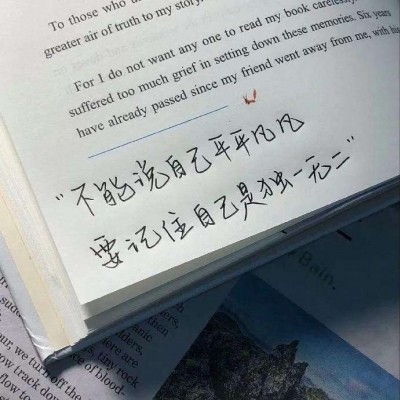 To those who
greater air of truth to my story.
For I do not want any one to read my book careless
suffered too much grief in setting down these memories. Six years
have already passed since my friend went away from me, with his
"不能说自己平平凡凡
要记住自己是独一无二"
Bain.
our, we turn off the
now track down
flow to
holders,
anic
here are
tiny rock
of blood-